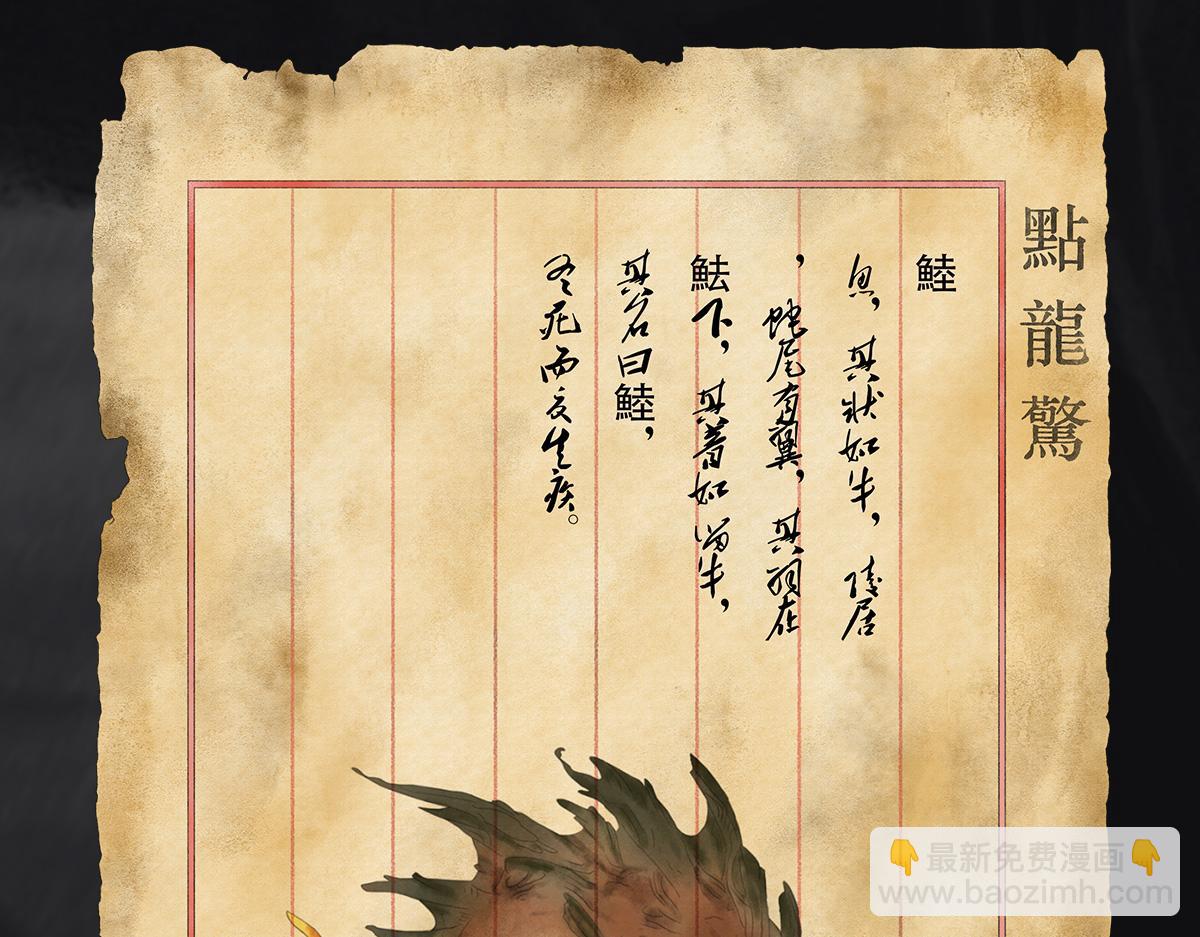 點龍驚
鯥
魚,其狀如牛,陵居
,蛇尾有翼,其羽在
魼下,其音如留牛,
其名曰鯥,
冬死而夏生疾。
👇最新免费漫画👇
www.baozimh.com